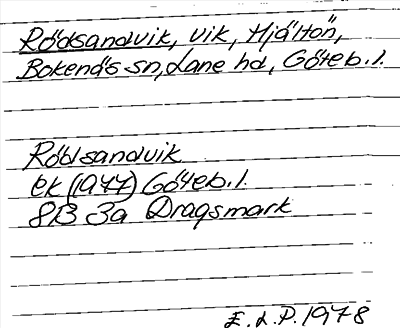 Rödsandvik, vik, Hjältön,
Bokenäs sn, Lane hd, Göteb. l.
Röd sandvik
ek (1977) Göteb. l.
8B 3a Dragsmark
E. L. P. 1978